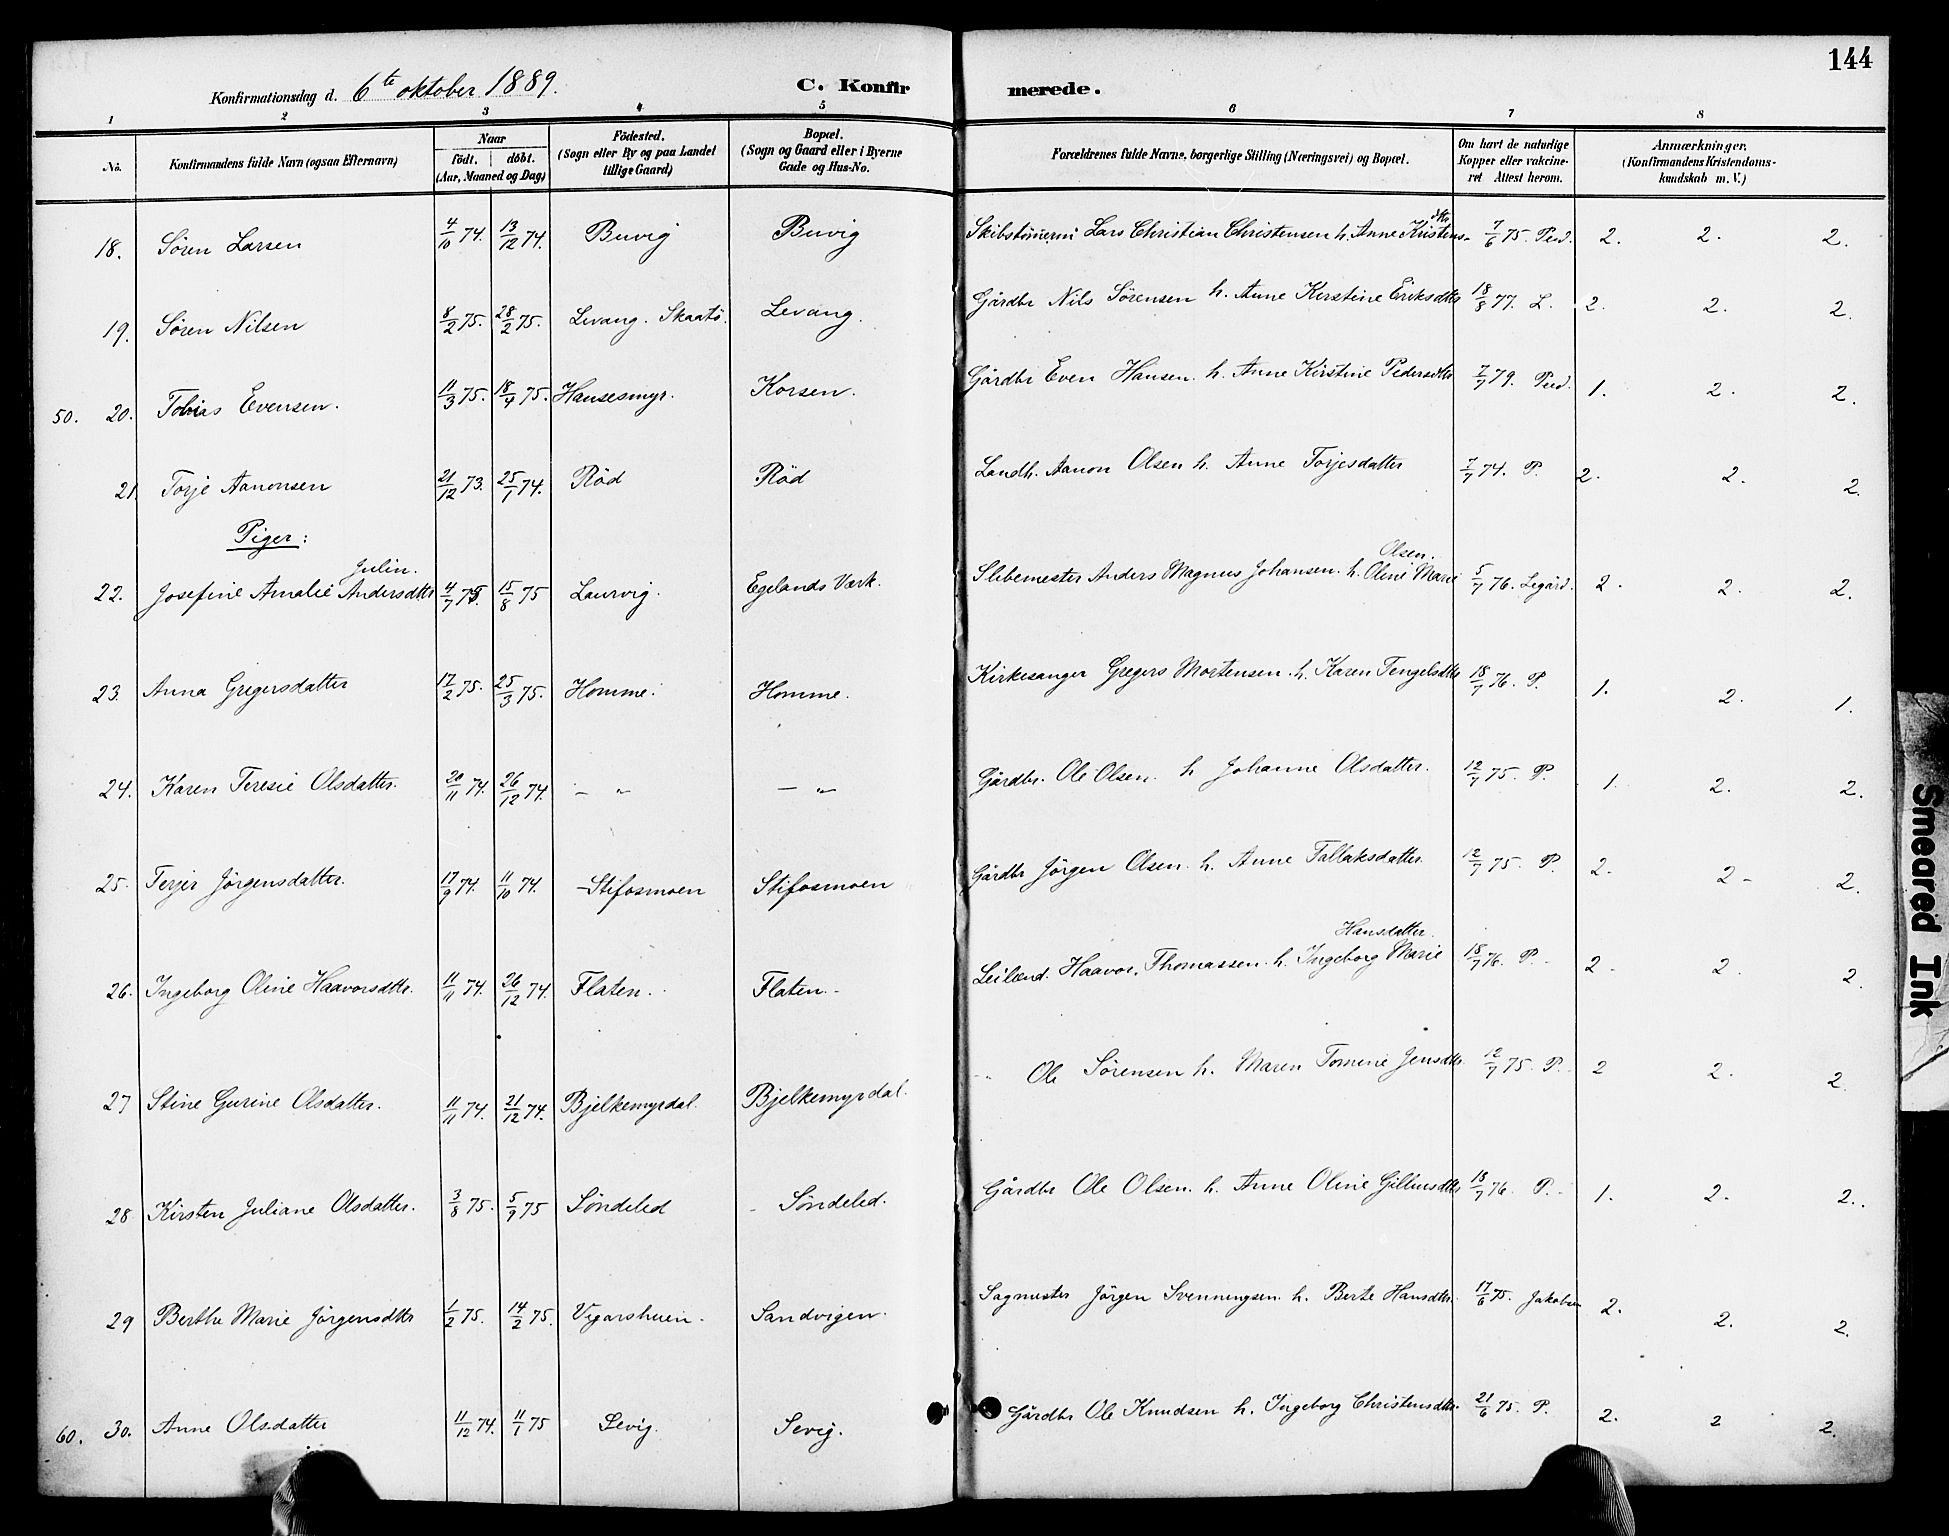 144
Konfirmationsdag d. 6te oktober 1889. C. Konfirmerede.
1 2 3 4 5 6 7 8
No. Konfirmandens fulde Navn (ogsaa Efternavn) Naar födt. döbt. (Aar, Maaned og Dag) Födested. (Sogn eller By og paa Landet tillige Gaard) Bopæl. (Sogn og Gaard eller i Byerne Gade og Hus-No. Forældrenes fulde Navne, borgerlige Stilling (Næringsvei) og Bopæl. Om havt de naturlige Kopper eller vakcineret Attest herom. Anmærkninger. (Konfirmandens Kristendomskundskab m. V.)
18. Sören Larsen 4/10 74. 13/12 74. Buvig Buvig Lars Christian Christensen h. Anne Kristensdtr 7/6 75. Ped. 2. 2. 2.
19. Sören Nilsen 8/2 75. 28/2 75. Levang. Skaatö. Levang. Gårdbr Nils Sörensen h. Anne Kerstine Eriksdtr 18/8 77. L. 2. 2. 2.
50. 20. Tobias Evensen. 11/3 75. 18/4 75. Hansesmyr. Korsen. Gårdbr Even Hansen. h. Anne Kirstine Pedersdtr 7/7 79. Ped. 1. 2. 2.
21 Torje Aanonsen 21/12 73. 25/1 74. Röd Röd Landh. Aanon Olsen h. Anne Torjesdatter 7/7 74. P. 2. 2. 2.
Piger:
22. Josefine Amalie Julin. Andersdtr 4/7 75. 15/8 75 Laurvig. Egelands Værk. Slibemester Anders Magnus Johansen. h. Oline Marie Olsen. 5/7 76. Legård. 2. 2. 2.
23. Anna Gregersdatter 17/2 75. 25/3 75. Homme. Homme. Kirkesanger Gregers Mortensen. h. Karen Tengelsdtr 18/7 76. P. 1. 2. 1.
24. Karen Teresie Olsdatter. 20/11 74. 26/12 74. – „ – „ Gårdbr. Ole Olsen. h Johanne Olsdatter. 12/7 75. P. 1. 2. 2.
25. Terjer Jörgensdatter. 17/9 74. 11/10 74. – Stifosmoen Stifosmoen Gårdbr Jörgen Olsen. h. Anne Tallaksdatter. 12/7 75. P. 2. 2 – 2.
26. Ingeborg Oline Haavorsdtr. 11/11 74. 26/12 74. Flaten. Flaten. Leilænd. Haavor Thomassen. h. Ingeborg Marie Hansdatter. 18/7 76. P. 2 2. 2.
27 Stine Gurine Olsdatter. 11/11 74. 21/12 74. Bjelkemyrdal. Bjelkemyrdal. „ Ole Sörensen h. Maren Tomine Jensdtr. 12/7 75. P. 2 2. 2.
28 Kirsten Juliane Olsdatter. 3/8 75. 5/9 75 Söndeled Söndeled. Gårdbr Ole Olsen. h. Anne Oline 18/7 76. P. 1. 2. 2.
29 Berthe Marie Jörgensdtr 1/2 75. 14/2 75. Vegarsheien. Sandvigen. Sagmester Jörgen Svenningsen. h. Berte Hansdtr. 17/6 75. Jakobsen 2. 2. 2.
60. 30. Anne Olsdatter 11/12 74. 11/1 75 Sevig. Sevig. Gårdbr Ole Knudsen h. Ingeborg Christensdtr. 21/6 75. P. 2. 2 2.
Smeared Ink